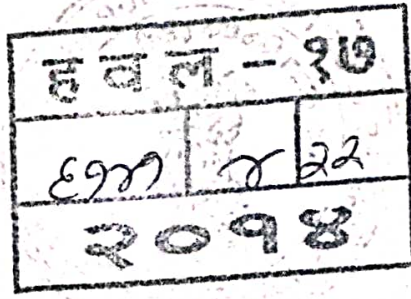 हवल - १७
६१४१ ४ २२
२०१४